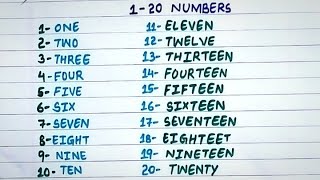 1-20 NUMBERS
1- ONE
2- TWO
3- THREE
4- FOUR
5- FIVE
6- SIX
7- SEVEN
8- EIGHT
9- NINE
10- TEN
11- ELEVEN
12- TWELVE
13- THIRTEEN
14- FOURTEEN
15- FIFTEEN
16- SIXTEEN
17- SEVENTEEN
18- EIGHTEET
19- NINETEEN
20- TWENTY